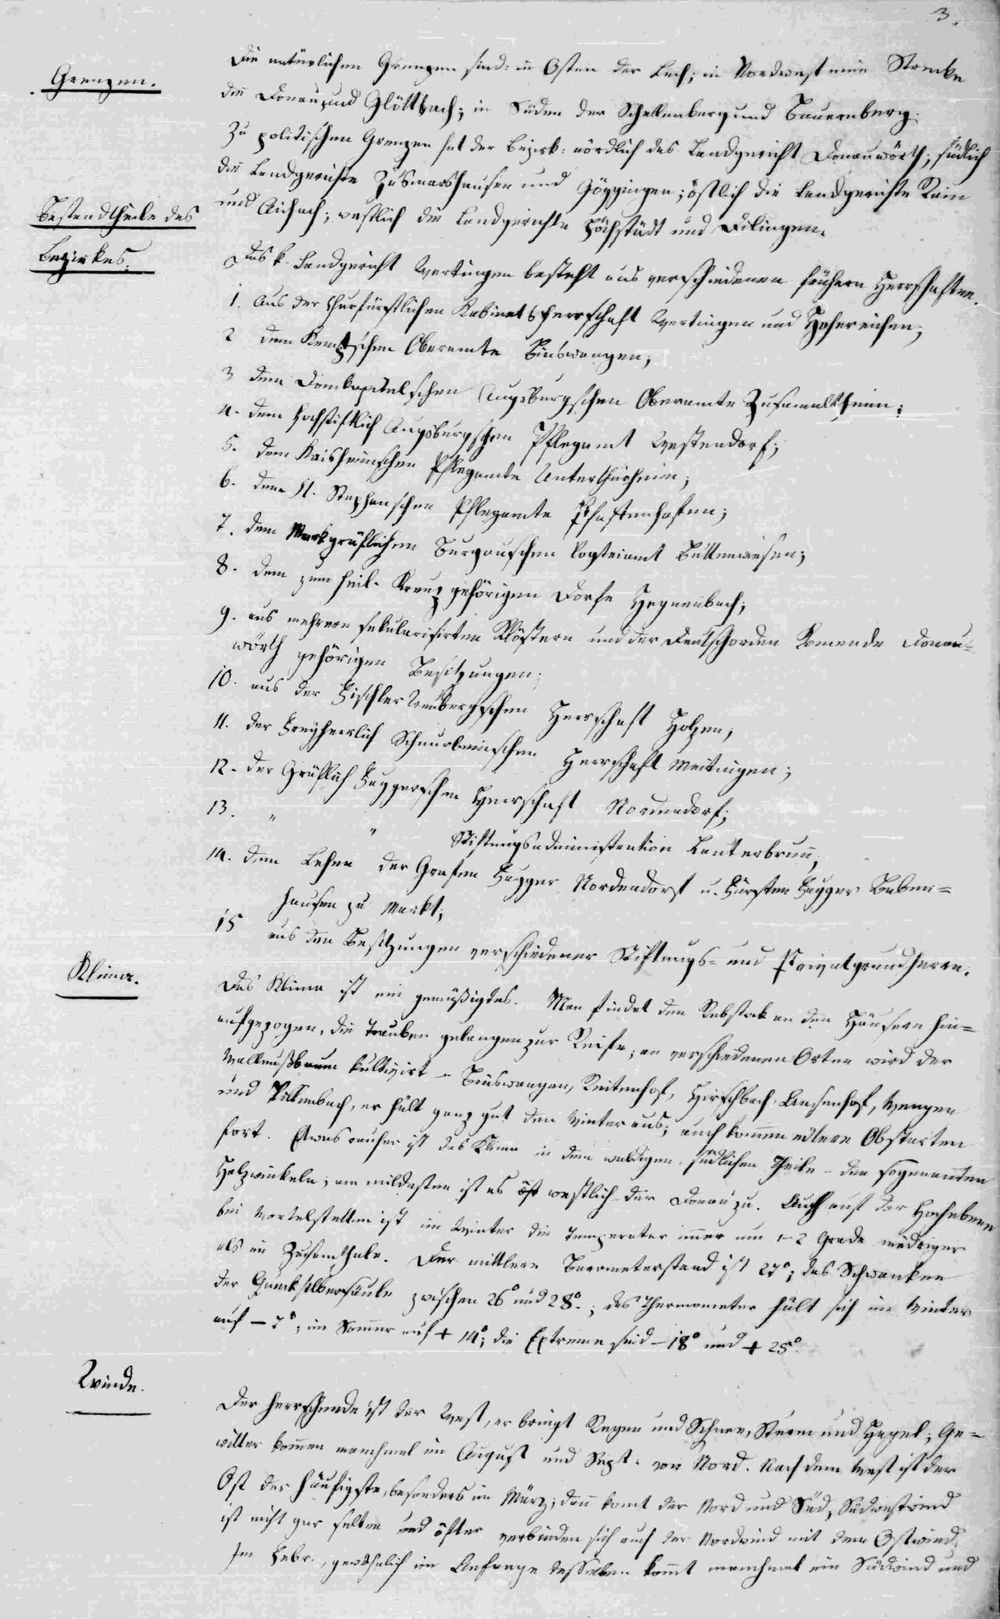 3.
Grenzen.
Die natürlichen Grenzen sind: in Osten der Lech; in Nordwest eine Strecke
die Donau und Glöttbach; in Süden der Schellenberg und Bauernberg.
Zu politischen Grenzen hat der Bezirk: nördlich das Landgericht Donauwörth; südlich
die Landgerichte Zusmarshausen und Göggingen; östlich die Landgerichte Rain
und Aichach; westlich die Landgerichte Höchstädt und Dilingen.
Bestandtheile des
Bezirkes.
Das k. Landgericht Wertingen besteht aus verschiedenen frühern Herrschaften.
1. Aus der Churfürstlichen Kabinetsherrschaft Wertingen und Hohenreichen;
2 dem Oberamte Binswangen;
3 dem Domkapitelschen Augsburgschen Oberamte Zusamaltheim;
4. dem hochstiftlich Augsburgschen Pflegamt Westendorf;
5. dem Kaisheimschen Pflegamte Unterthürheim;
6. dem St. Stephanschen Pflegamte Pfaffenhofen;
7. dem Markgräflichen Burgauschen Vogteiamt Buttenwiesen;
8. dem zum heil. Kreuz gehörigen Dorfe Hegnenbach;
9. aus mehrern sekularisirten Klöstern und der Deutschorden Komende Donau=
wörth gehörigen Besitzungen;
10. aus der Fischler Treubergschen Herrschaft Holzen,
11. der Freyherrlich Schnurbeinschen Herrschaft Meitingen;
12. der Gräflich Fuggerschen Herrschaft Nordendorf;
13. " " Stiftungsadministration Lauterbrunn,
14. dem Lehen der Grafen Fugger Nordendorf u. Fürsten Fugger Baben=
hausen zu Markt;
15 aus den Besitzungen verschiedener Stiftungs= und Privatgrundherrn.
Klima.
Das Klima ist ein gemäßigtes. Man findet den Rebstock an den Häusern hin=
aufgezogen, die Trauben gelangen zur Reife; an verschiedenen Orten wird der
Wallnußbaum kultivirt – Binswangen, Reitenhof, Hirschbach, Wengen
und Possenbach, er hält ganz gut den Winter aus; auch kommen edlere Obstarten
fort. Etwas rauher ist das Klima in dem waldigen südlichen Theile – den sogenannten
Holzwinkeln; am mildesten ist es westlich der Donau zu. Auch auf der Hochebene
bei ist im Winter die Temperatur immer um 1–2 Grade niedriger
als im Zusamthale. Der mittlere Barometerstand ist 27°; das Schwanken
der Quecksilbersäule zwischen 26° und 28°.; das Thermometer hält sich im Winter
auf – 7°, im Sommer auf + 14°; die Extreme sind – 18° und + 25°.
Winde.
Der herrschende ist der West, er bringt Regen und Schnee, Sturm und Hagel; Ge=
witter kommen manchmal im August und Sept. von Nord. Nach dem West ist der
Ost der häufigste, besonders im März; dann komt der Nord und Süd, Südwestwind
ist nicht gar selten und öfter verbinden sich auch der Nordwind mit dem Ostwind.
Im Febr., gewöhnlich im Anfange desselben kommt manchmal ein Südwind und